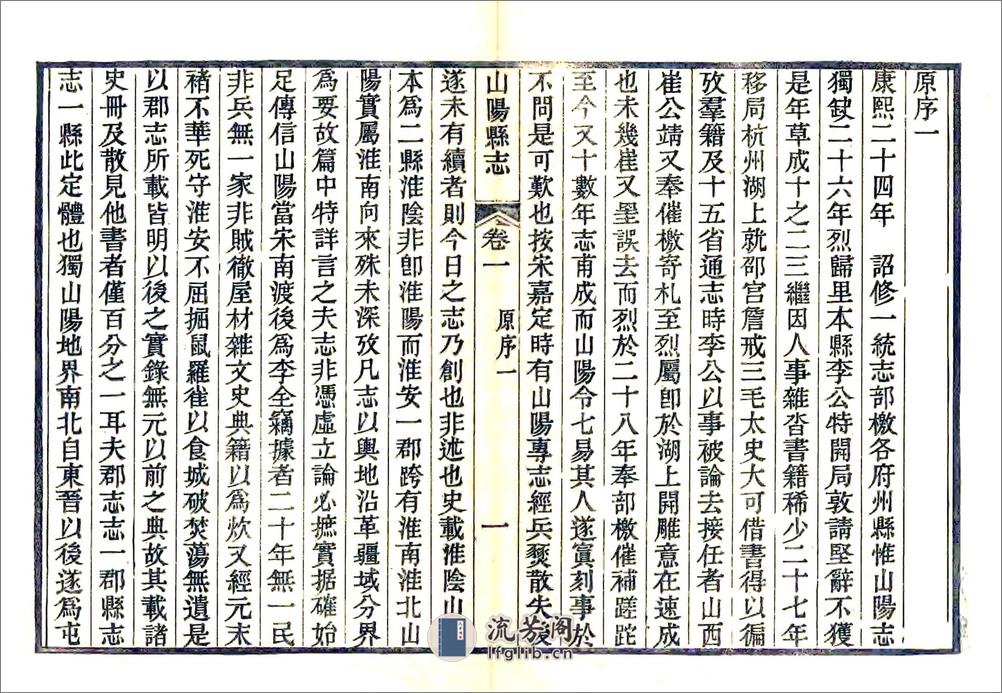 原序一
康熙二十四年　詔修一統志部檄各府州縣惟山陽志
獨缺二十六年烈歸里本縣李公特開局敦請堅辭不獲
是年草成十之二三繼因人事雜沓書籍稀少二十七年
移局杭州湖上就邵宮詹戒三毛太史大可借書得以徧
攷羣籍及十五省通志時李公以事被論去接任者山西
崔公靖又奉催檄寄札至烈屬卽於湖上開雕意在速成
也未幾崔又罣誤去而烈於二十八年奉部檄催補蹉跎
至今又十數年志甫成而山陽令七易其人遂寘刻事於
不問是可歎也按宋嘉定時有山陽專志經兵燹散失後
山陽縣志
卷一
原序一
一
遂未有續者則今日之志乃創也非述也史載淮陰山
本為二縣淮陰非卽淮陽而淮安一郡跨有淮南淮北山
陽實屬淮南向來殊未深攷凡志以輿地沿革疆域分界
為要故篇中特詳言之夫志非憑虛立論必摭實據確始
足傳信山陽當宋南渡後為李全竊據者二十年無一民
非兵無一家非賊徹屋材雜文史典籍以為炊又經元末
褚不華死守淮安不屈掘鼠羅雀以食城破焚蕩無遺是
以郡志所載皆明以後之實錄無元以前之典故其載諸
史冊及散見他書者僅百分之一耳夫郡志志一郡縣志
志一縣此定體也獨山陽地界南北自東晉以後遂為屯
流芳阁
lfglib.cn